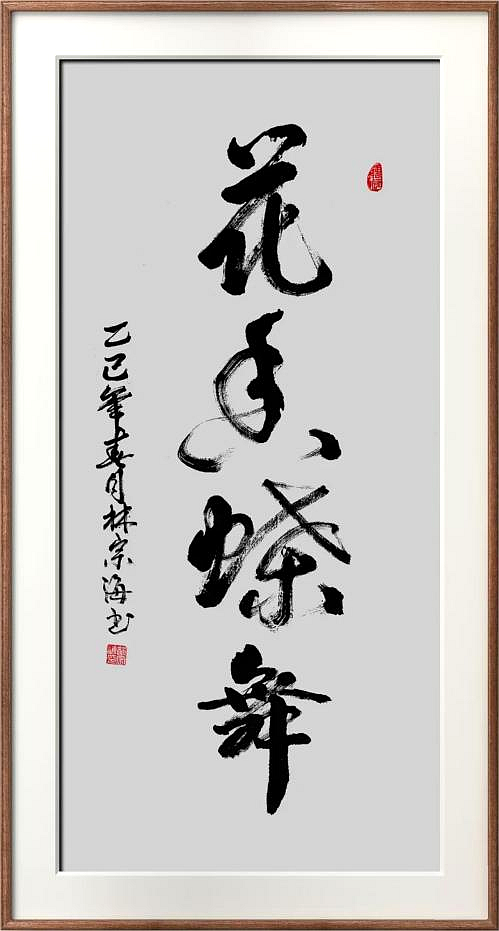 花香蝶舞
乙巳年春月林宗海书